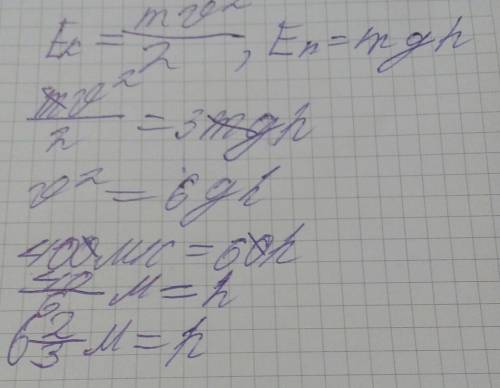 Eк = mv²/2, Eп = mgh
mv²/2 = 3mgh
v² = 6gh
400 м = 60h
40/6 м = h
6 2/3 м = h